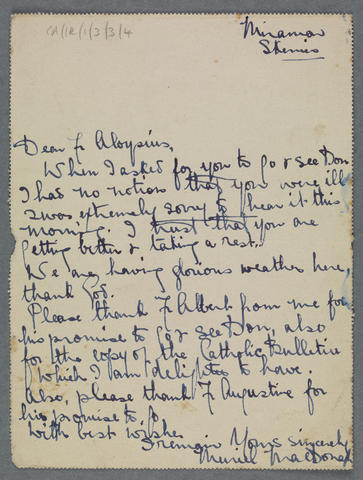 CA/IR/1/3/3/4
Miramar
Skerries
Dear Fr Aloysius,
When I asked for you to go & see Don
I had no notion that you were ill
& was extremely sorry to hear it this
morning. I trust that you are
getting better & taking a rest.
We are having glorious weather here,
thank God.
Please thank Fr Albert from me for
his promise to go & see Don, also
for the copy of the Catholic Bulletin
which I am delighted to have.
Also, please thank Fr Augustine for
his promise to go.
With best wishes
I remain Yours sincerely
Muriel MacDonagh